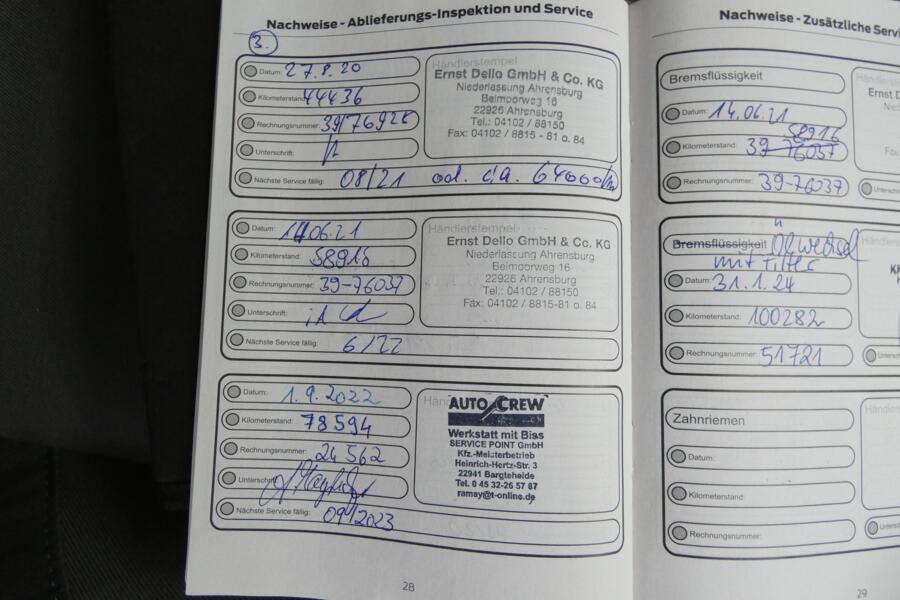 Nachweise - Ablieferungs-Inspektion und Service
3.
Datum: 27.8.20
Kilometerstand: 44436
Rechnungsnummer:
Unterschrift:
Nächste Service fällig: 08/21 od. ca. 64000
Händlerstempel
Ernst Dello GmbH & Co. KG
Niederlassung Ahrensburg
Beimoorweg 16
22926 Ahrensburg
Tel.: 04102 / 88150
Fax: 04102 / 8815 - 81 o. 84
Datum: 14.06.21
Kilometerstand: 58916
Rechnungsnummer: 39-76037
Unterschrift:
Nächste Service fällig: 6/22
Händlerstempel
Ernst Dello GmbH & Co. KG
Niederlassung Ahrensburg
Beimoorweg 16
22926 Ahrensburg
Tel.: 04102 / 88150
Fax: 04102 / 8815-81 o. 84
Datum: 1.9.2022
Kilometerstand: 78594
Rechnungsnummer: 24562
Unterschrift:
Nächste Service fällig: 09/2023
AUTO CREW
Werkstatt mit Biss
SERVICE POINT GmbH
Kfz.-Meisterbetrieb
Heinrich-Hertz-Str. 3
22941 Bargteheide
Tel. 0 45 32-26 57 87
ramay@t-online.de
28
Nachweise - Zusätzliche
Bremsflüssigkeit
Datum: 14.06.21
58916
Kilometerstand: 39-76037
Rechnungsnummer: 39-76037
Ernst
Bremsflüssigkeit Ölwechsel
mit Filter
Datum: 31.1.24
Kilometerstand: 100282
Rechnungsnummer: 51721
Zahnriemen
Datum:
Kilometerstand:
Rechnungsnummer:
29